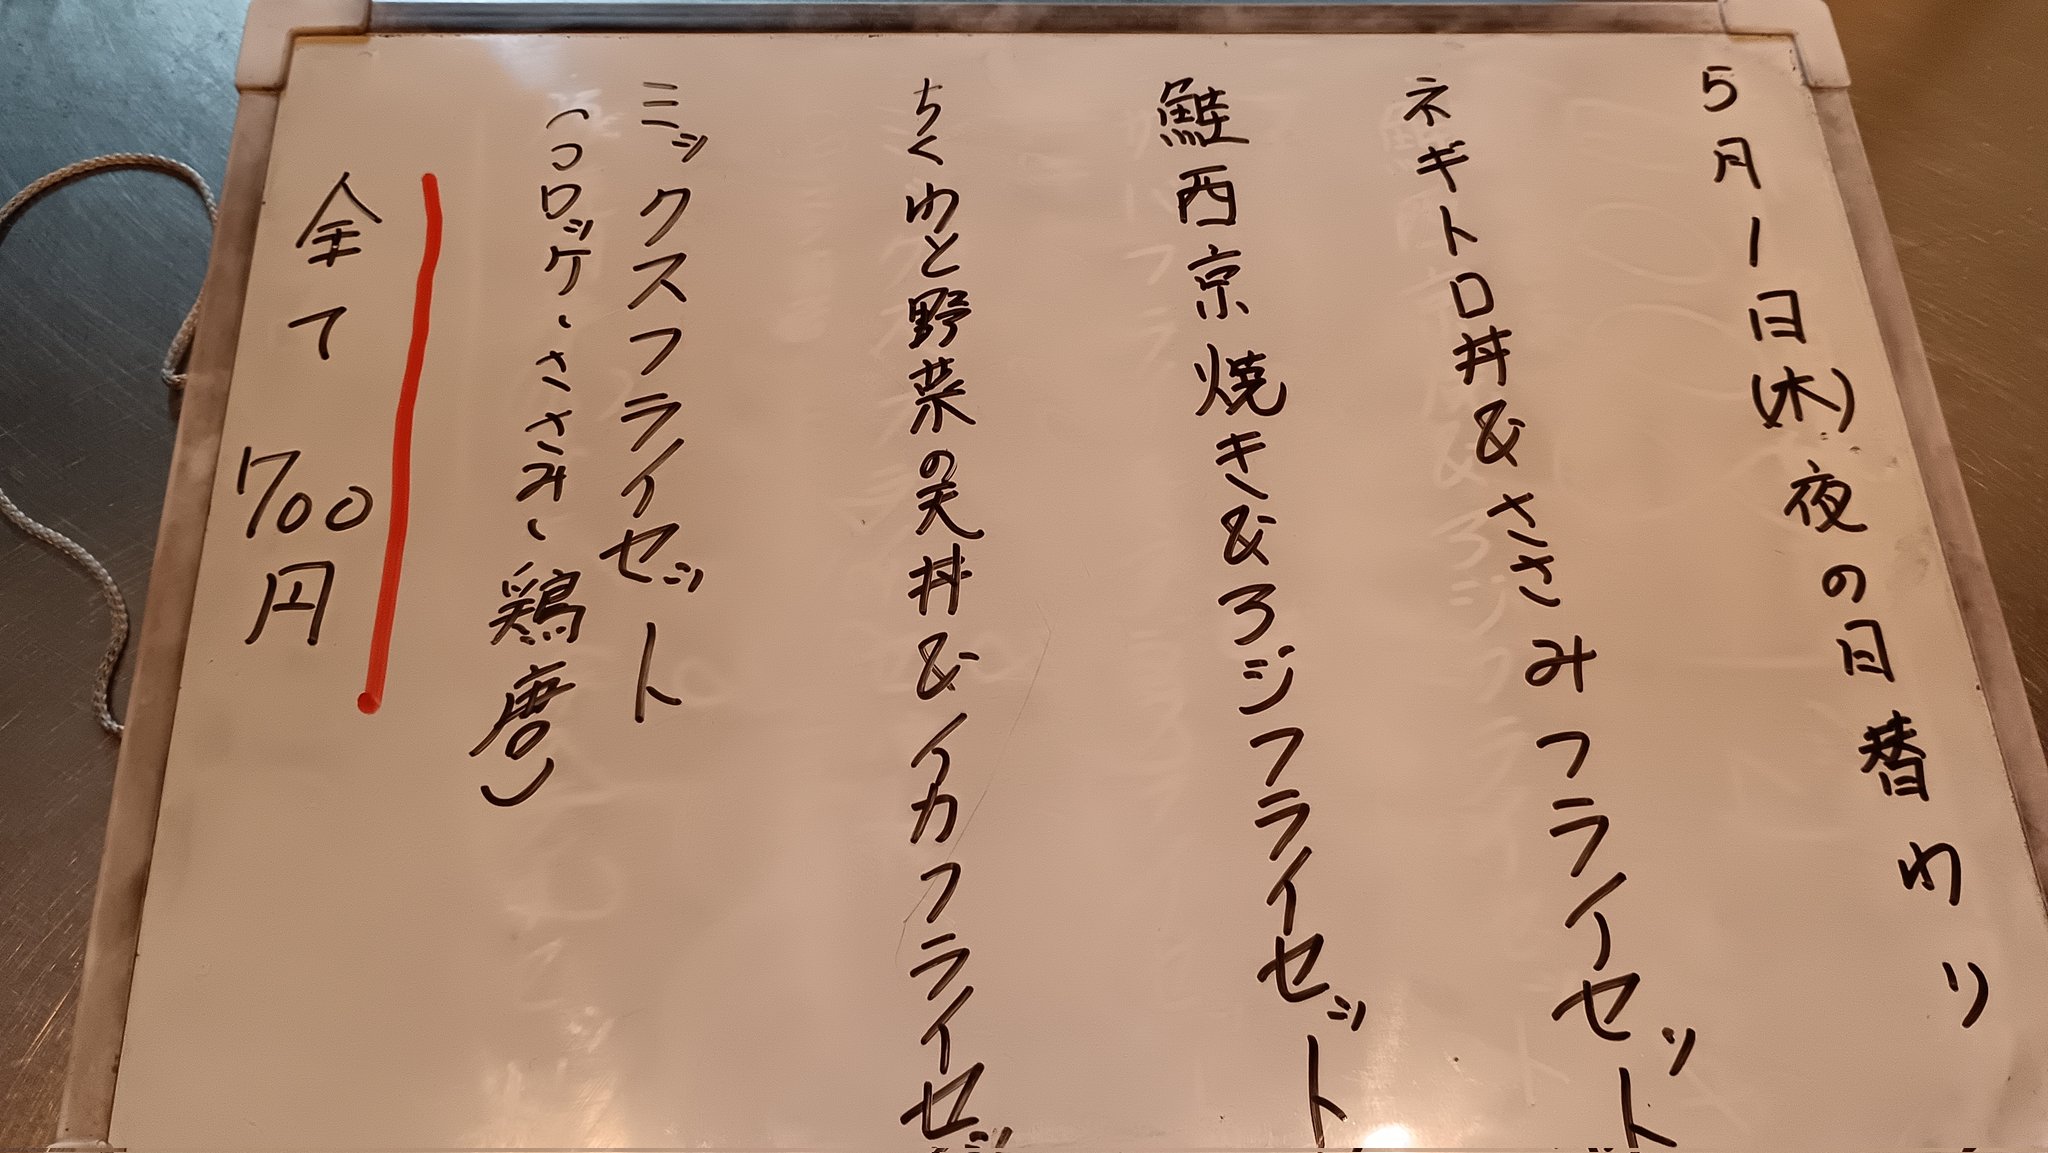 5月1日(木)夜の日替わり
ネギトロ丼&ささみフライセット
鮭西京焼き&アジフライセット
ちくわと野菜の天丼&イカフライセッ
ミックスフライセット
(コロッケ、ささみ、鶏唐)
全て 700円